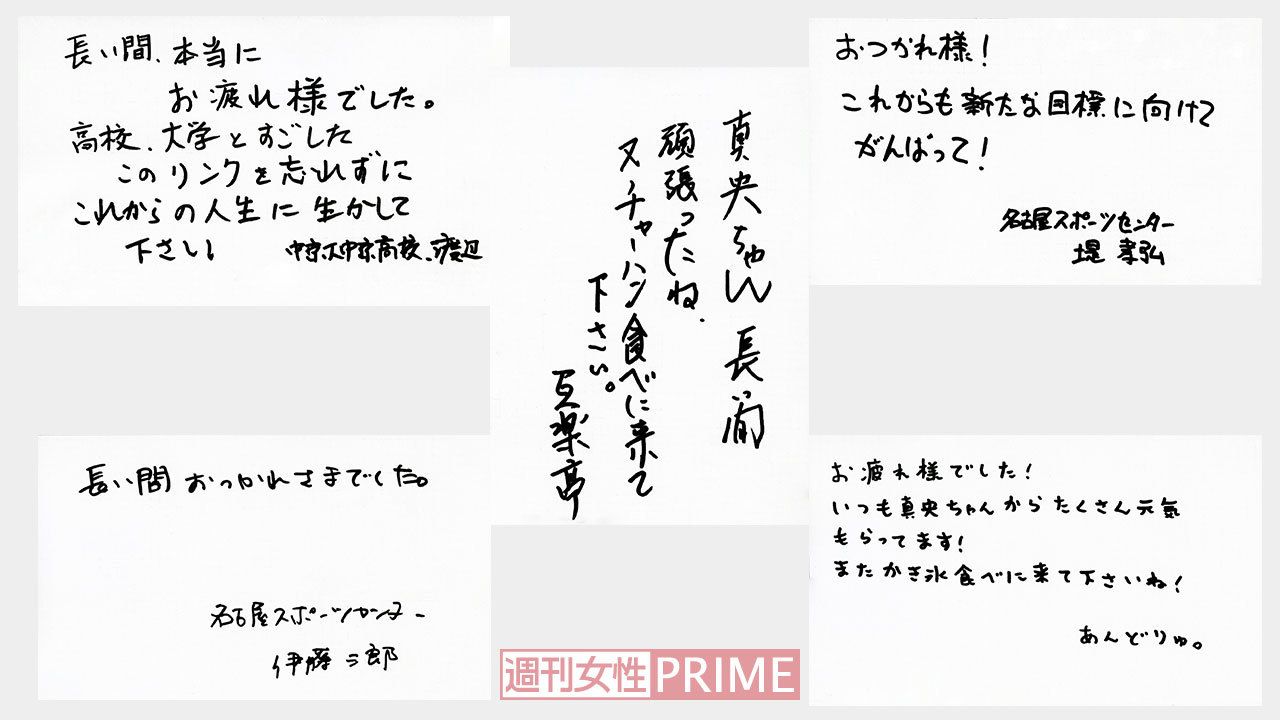 長い間、本当に
お疲れ様でした。
高校、大学とすごした
このリンクを忘れずに
これからの人生に生かして
下さい 中京大中京高校、渡辺
真央ちゃん長い間
頑張ったね.
又、チャーハン食べに来て
下さい。
百楽亭
おつかれ様!
これからも新たな目標に向けて
がんばって!
名古屋スポーツセンター
堤 孝弘
長い間 おつかれさまでした。
名古屋スポーツセンター
伊藤 三郎
お疲れ様でした!
いつも真央ちゃんからたくさん元気
もらってます!
またかき氷食べに来て下さいね!
あんどりゅ。
週刊女性PRIME